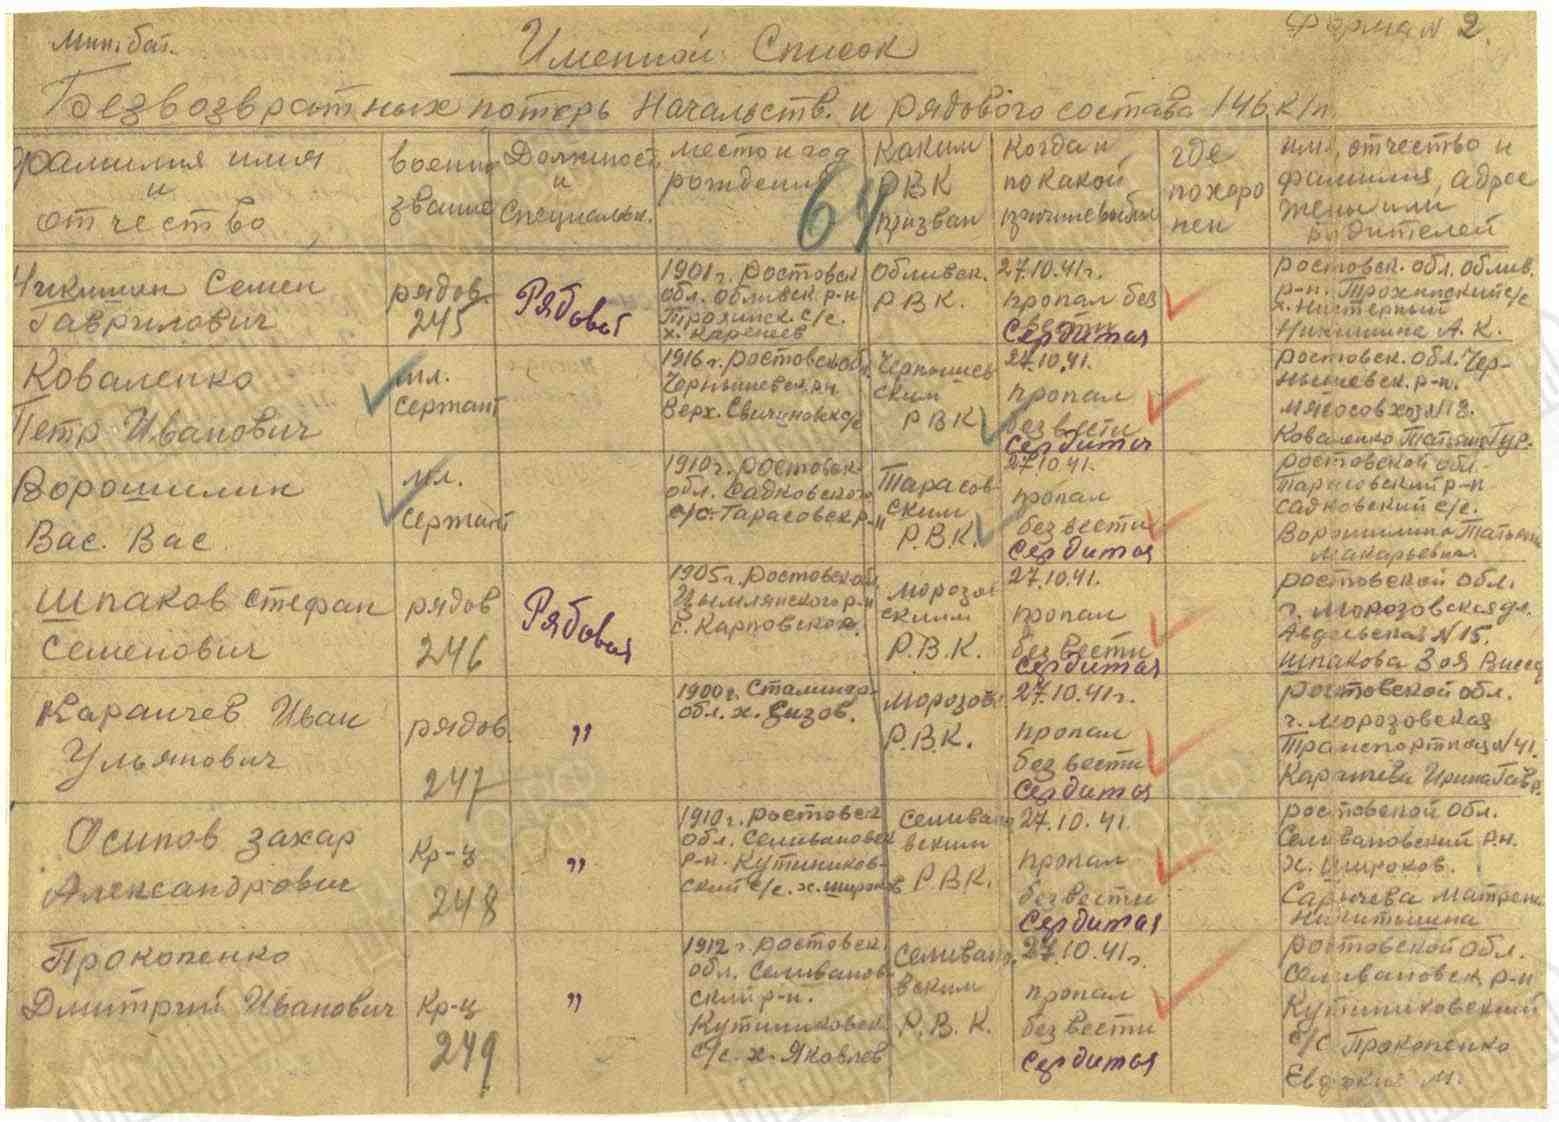 Мин. бат.
Форма N 2.
Именной Список
Безвозвратных потерь Начальств. и рядового состава 146 к/п.
фамилия имя
и
отчество
военно
звание
Должност
и
специальн.
место и год
рождения
64
Каким
Р.В.К
призван
Когда и
по какой
причине выбыл
где
похоро
нен
имя, отчество и
фамилия, адрес
жены или
родителей
Никишин Семен
Гаврилович
рядов.
245
Рядовой
1901 г. Ростовск
обл. Обливск р-н
с/с.
Обливск.
Р.В.К.
27.10.41 г.
пропал без
вести
Сердитая
Ростовск. обл. Облив.
р-н.
Никишина А. К.
Коваленко
Петр Иванович
мл.
сержант
1916 г. Ростовской обл
Чернышевск. р-н
Верх.
Чернышев
ским
Р.В.К
27.10.41.
пропал
без вести
Сердитая
Ростовск. обл. Чер-
нышевск. р-н.
мясосовхоз N 18.
Коваленко
Ворошилин
Вас. Вас.
мл.
сержант
1910 г. Ростовск.
обл. Садковского
с/с. Тарасовск р-н
Тарасов-
ским
Р.В.К.
27.10.41.
пропал
без вести
Сердитая
Ростовской обл.
Тарасовский р-н
Садковский с/с.
Ворошилина Татьяна
Макарьевна
Шпаков Стефан
Семенович
рядов
246
Рядовой
1905 г. Ростовской
Цымлянского р-н
с. Карповское.
Морозов
ским
Р.В.К.
27.10.41.
пропал
без вести
Сердитая
Ростовской обл.
г. Морозовская ул.
N 15.
Шпакова Зоя
Каранчев Иван
Ульянович
рядов.
247
"
1900 г. Сталингр.
обл. х.
Морозов
Р.В.К.
27.10.41 г.
пропал
без вести
Сердитая
Ростовской обл.
г. Морозовская
Транспортная N 41.
Каранчева Ирина Гавр.
Осипов Захар
Александрович
Кр-ц
248
"
1910 г. Ростовск
обл. Селивановск
р-н. Кутейников-
ский с/с. х. Широков
Селивано
вским
Р.В.К.
27.10.41.
пропал
без вести
Сердитая
Ростовской обл.
Селивановский р.н.
х. Широков.
Сарычева Матрена
Прокопенко
Дмитрий Иванович
Кр-ц
249
"
1912 г. Ростовск.
обл. Селиванов-
ский р-н.
Кутениковск.
с/с. х. Яковлев
Селивано.
вским
Р.В.К.
27.10.41 г.
пропал
без вести
Сердитая
Ростовской обл.
Селивановск р-н
Кутиниковский
с/с Прокопенко
Евдокия М.